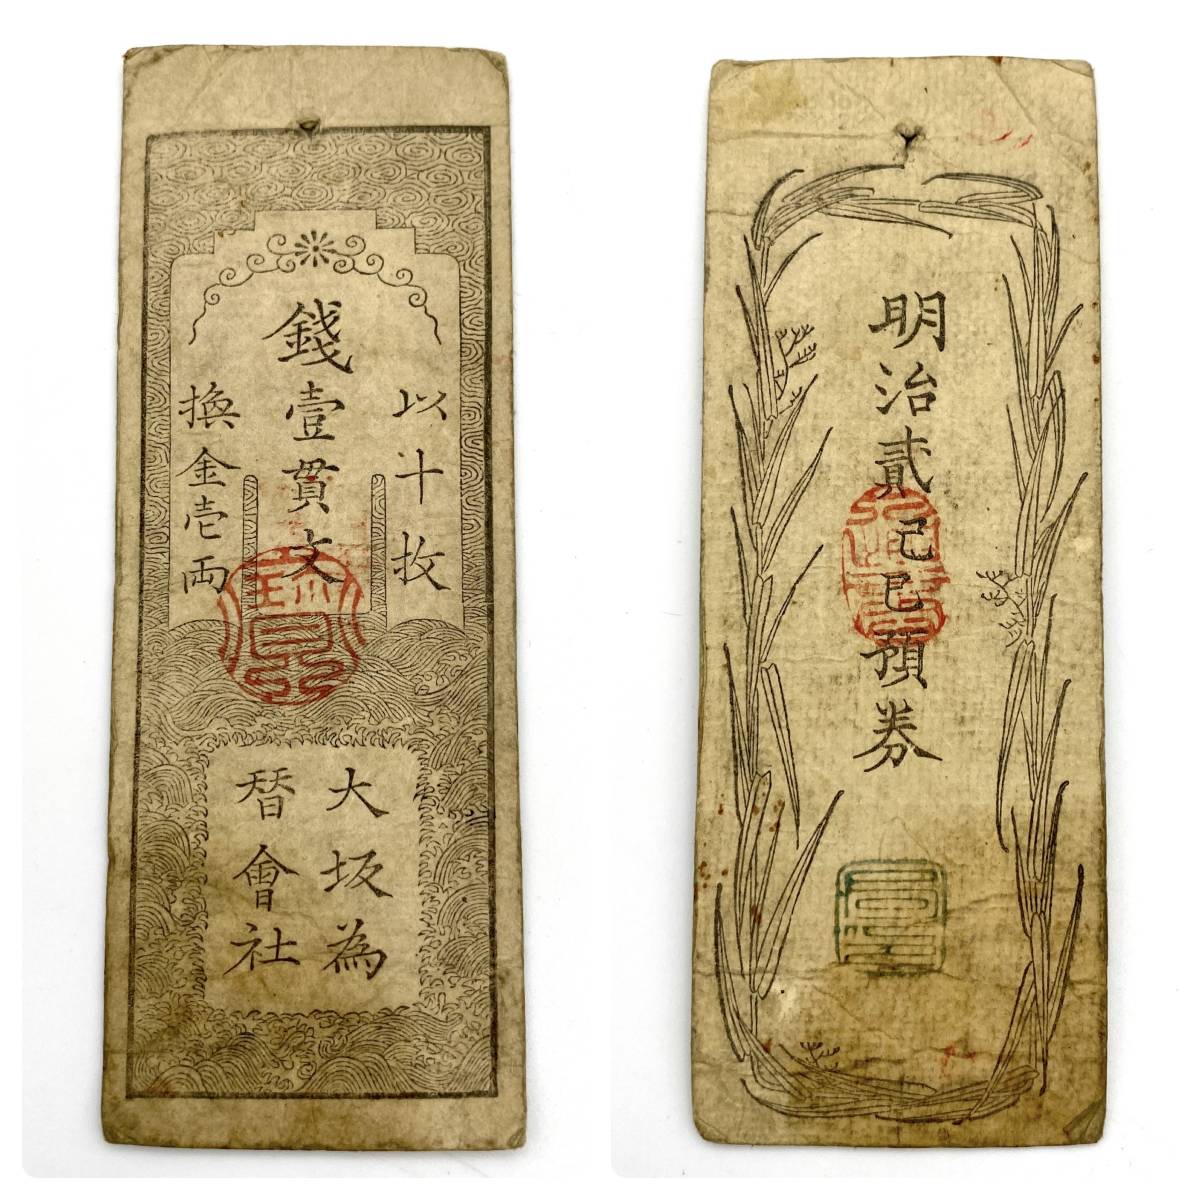 以十枚
錢壹貫文
換金壱両
大坂為
替會社
明治貳己巳預券